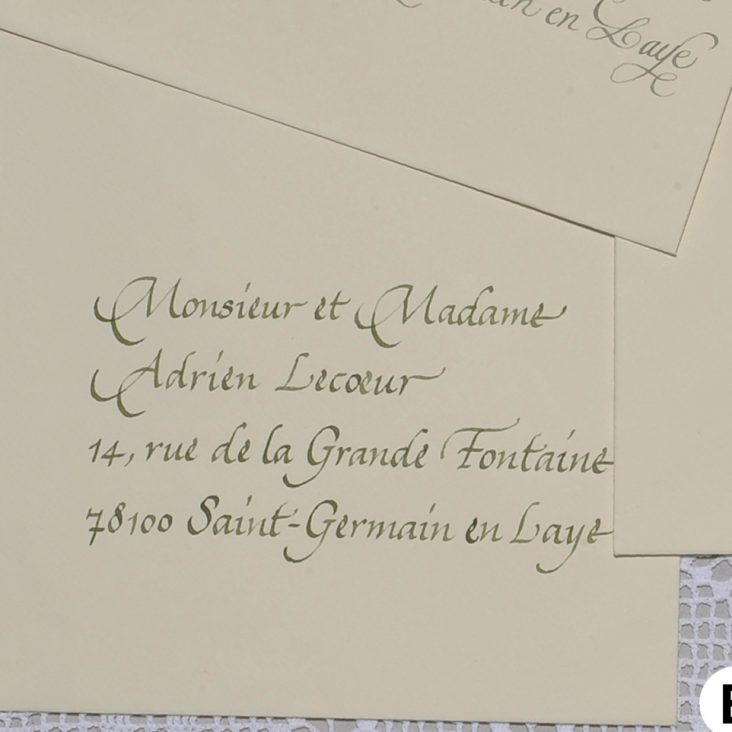 en Laye
Monsieur et Madame
Adrien Lecœur
14, rue de la Grande Fontaine
78100 Saint-Germain en Laye